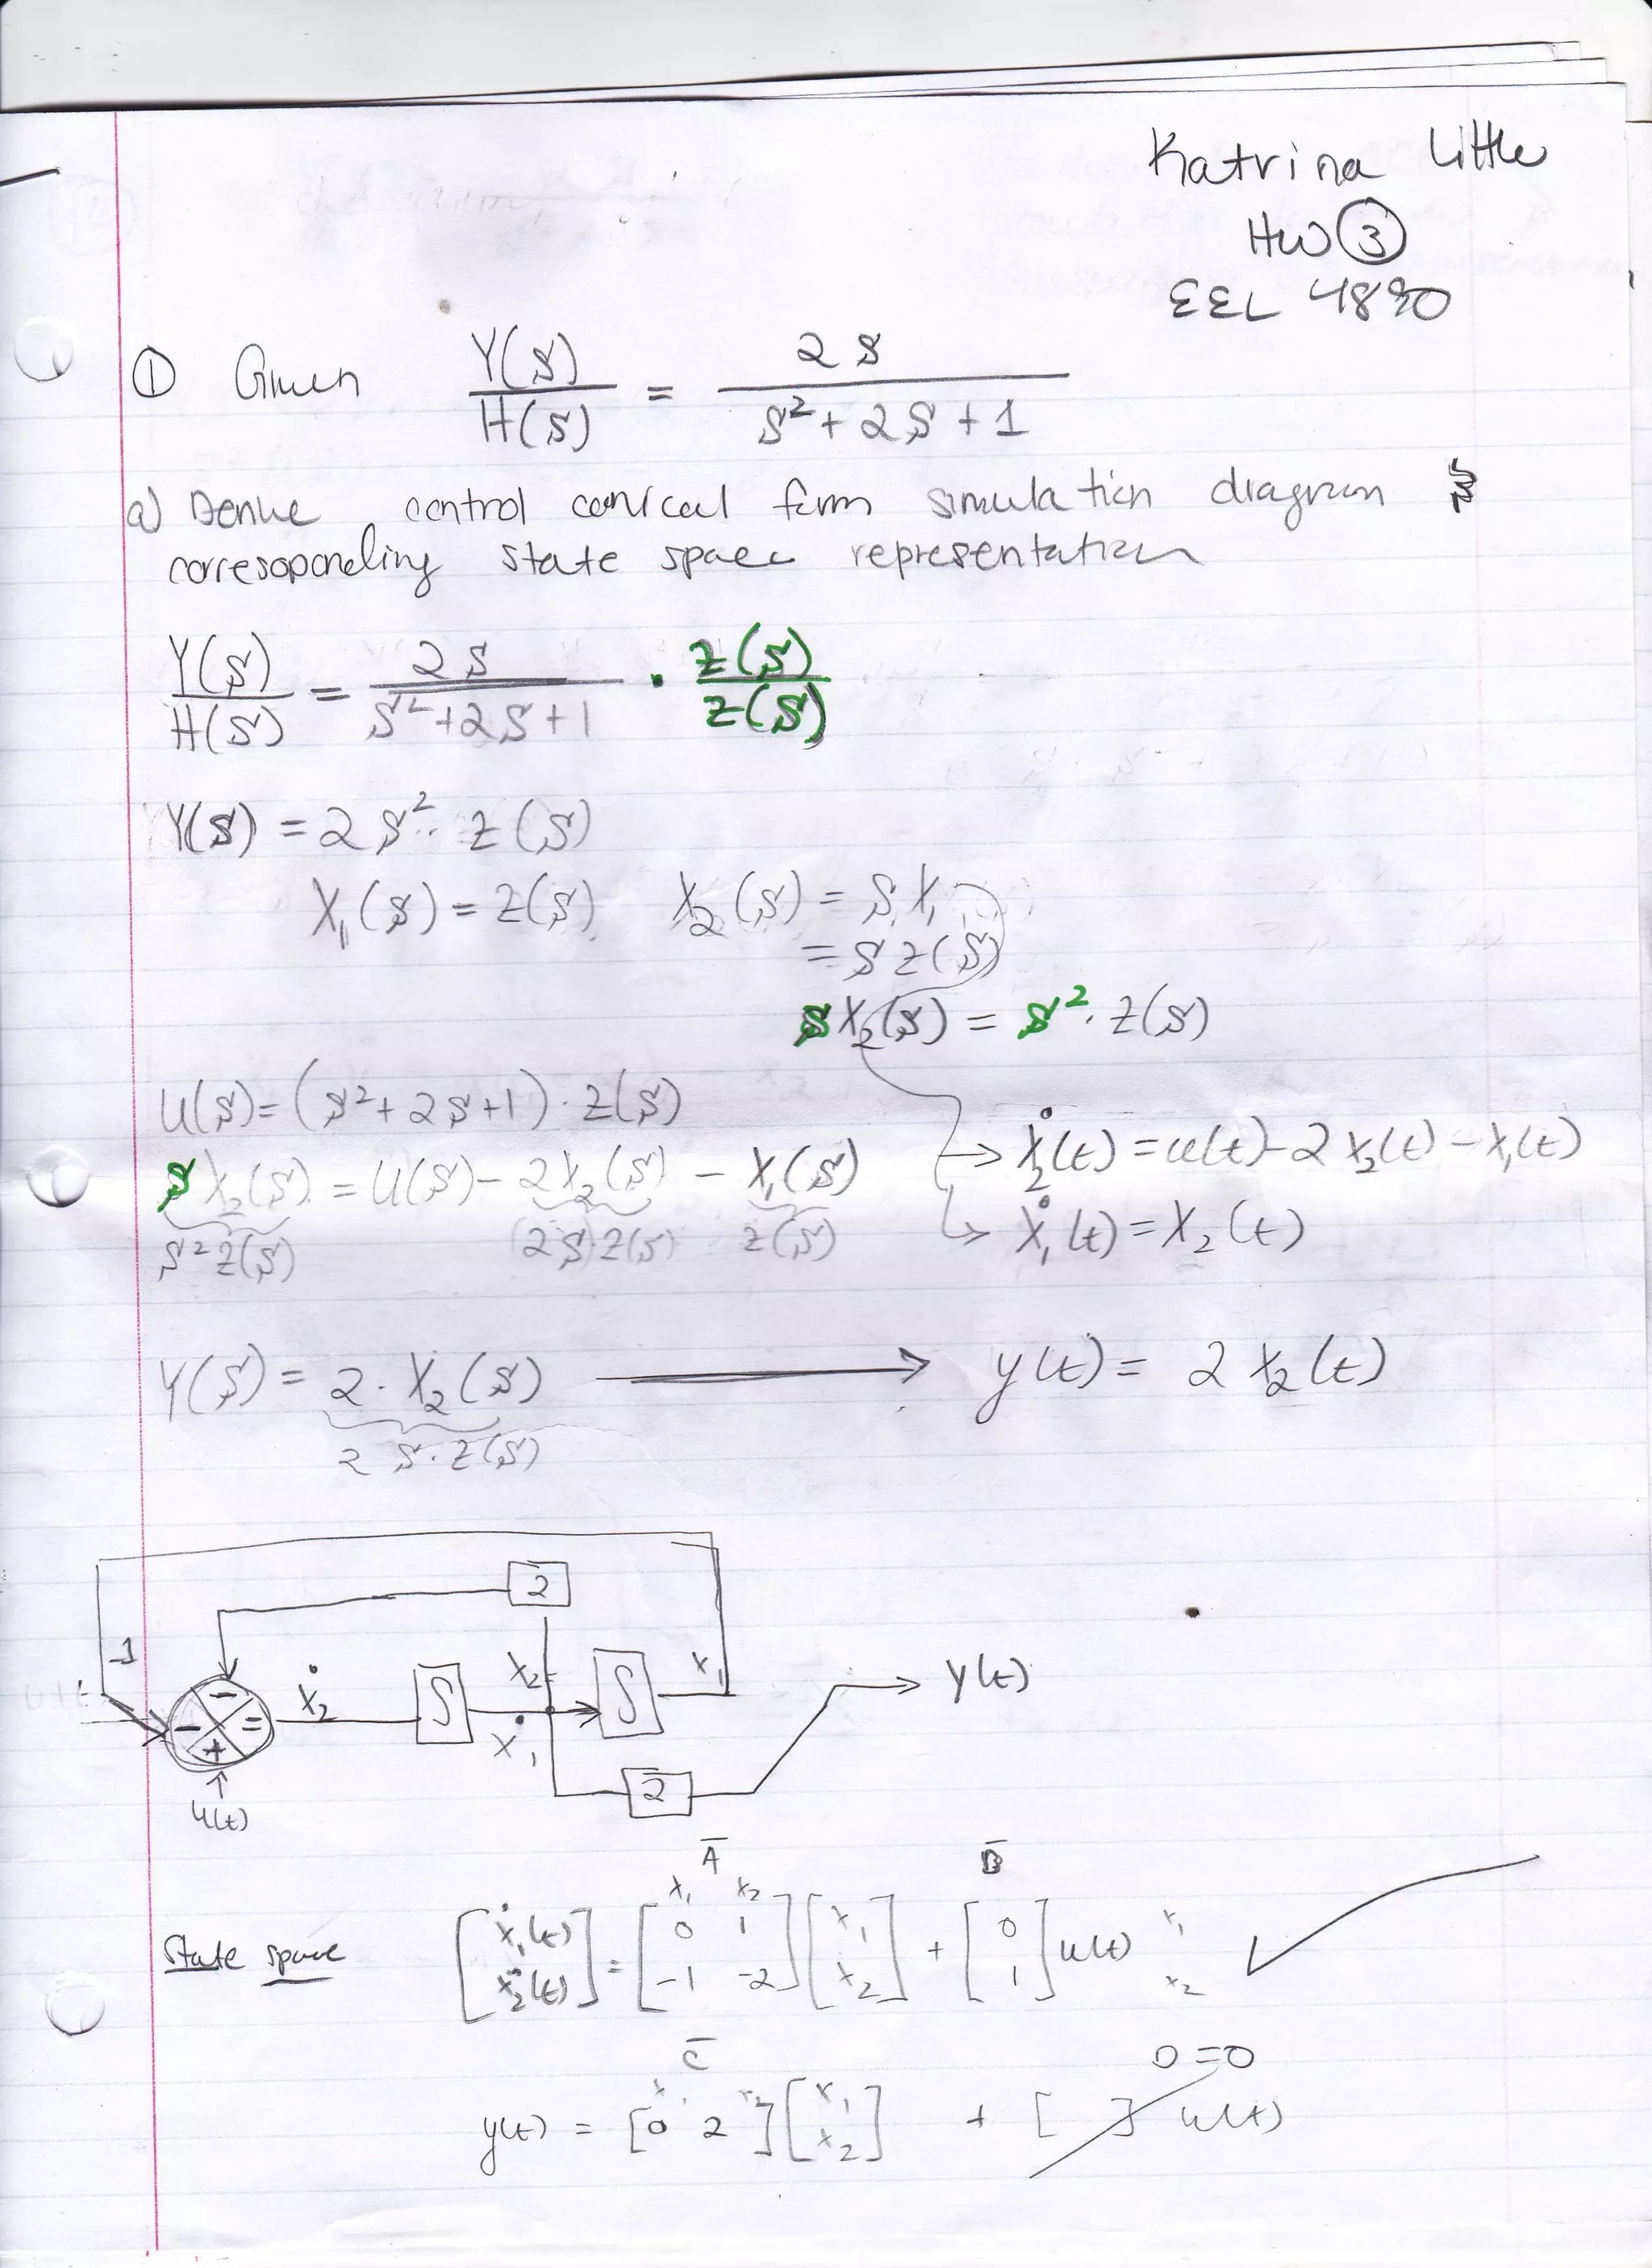 Katrina Little
HW ③
EEL 4830
① Given Y(s)/H(s) = 2s/(s²+2s+1)
a) Derive control conical form simulation diagram &
corresoponding state space representation
Y(s)/H(s) = 2s/(s²+2s+1) · Z(s)/Z(s)
Y(s) = 2s² · Z(s)
X₁(s) = Z(s) X₂(s) = s X₁
= s Z(s)
sX₂(s) = s² · Z(s)
U(s) = (s²+2s+1) · Z(s)
sX₂(s) = U(s) - 2X₂(s) - X₁(s) → ẋ₂(t) = u(t) - 2x₂(t) - x₁(t)
s²Z(s) (2s)Z(s) Z(s) ↳ ẋ₁(t) = x₂(t)
Y(s) = 2 · X₂(s) → y(t) = 2x₂(t)
2 s · Z(s)
2
-1
u(t) - - = + ẋ₂ ∫ x₂ ẋ₁ ∫ x₁ y(t)
2
u(t)
A B
x₁ x₂
State space [ẋ₁(t) ẋ₂(t)] = [0 1 -1 -2] [x₁ x₂] + [0 1] u(t) x₁ x₂ ✓
C 0=0
x₁ x₂
y(t) = [0 2] [x₁ x₂] + [ ] u(t)